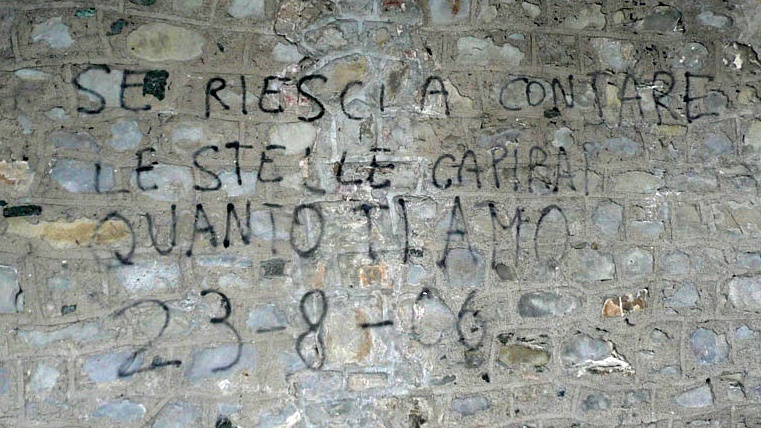 SE RIESCI A CONTARE
LE STELLE CAPIRAI
QUANTO TI AMO
23-8-06